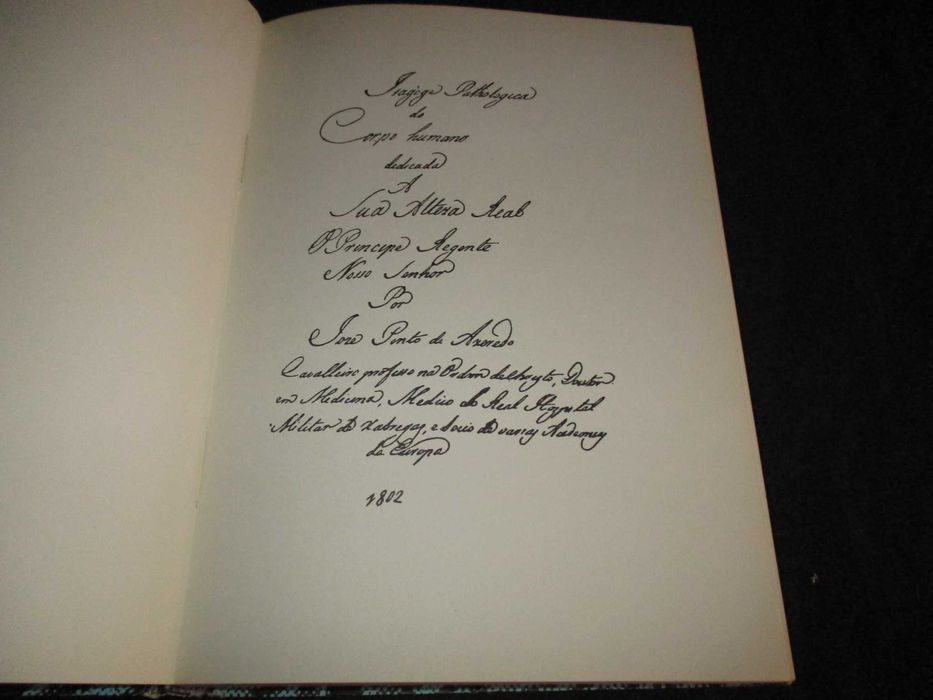 Isagoge Pathologica
do
Corpo humano
dedicada
A
Sua Alteza Real
O Principe Regente
Nosso Senhor
Por
Joze Pinto de Azeredo
Cavalleiro professo na Ordem de Christo, Doutor
em Medicina, Medico do Real Hospital
Militar de Xabregas, e Socio de varias Academias
da Europa
1802